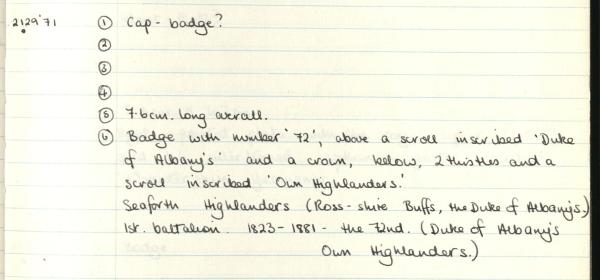 2129'71 ① Cap-badge?
②
③
④
⑤ 7.6cm. long overall.
⑥ Badge with number '72', above a scroll inscribed 'Duke
of Albany's' and a crown, below, 2 thistles and a
scroll inscribed 'Own Highlanders.'
Seaforth Highlanders (Ross-shire Buffs, the Duke of Albany's.)
1st. battalion. 1823-1881 - the 72nd. (Duke of Albany's
Own Highlanders.)